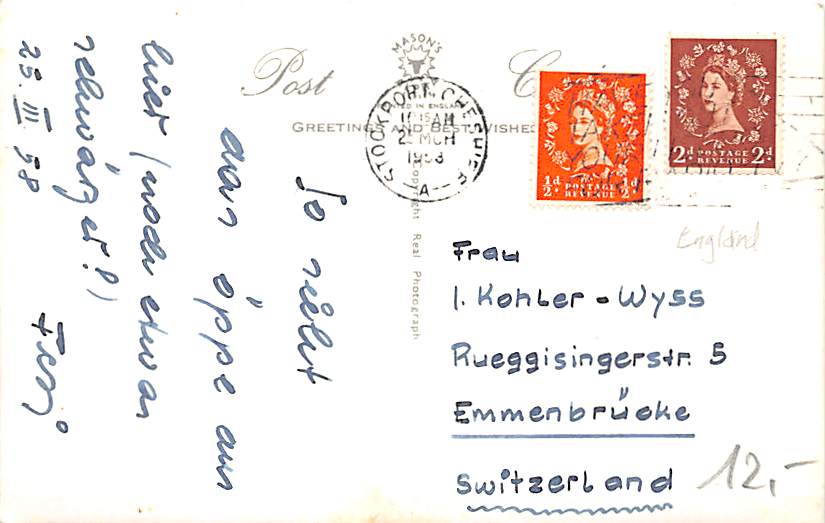 Post
MASON'S
PRINTED IN ENGLAND
GREETINGS AND BEST WISHES
STOCKPORT CHESHIRE
11 15 AM
MCH
1958
A
½d POSTAGE ½d
REVENUE
2d POSTAGE 2d
REVENUE
Copyright Real Photograph
England
Frau
I. Kohler - Wyss
Rueggisingerstr. 5
Emmenbrücke
Switzerland
12,-
So sieht
man öppe aus
hier (noch etwas
schwärzer!)
25. III. 58